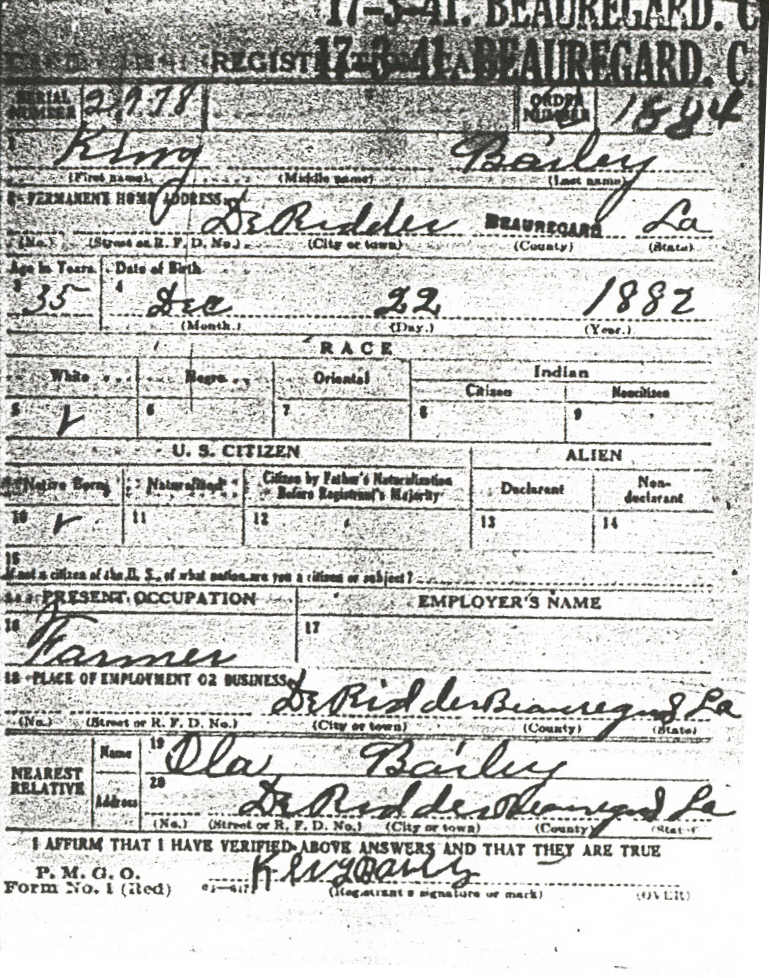 17-3-41. BEAUREGARD. C
REGIST 17-3-41. BEAUREGARD. C
SERIAL NUMBER 2978 ORDER NUMBER 1884
1 King Bailey
(First name) (Middle name) (Last name)
2 PERMANENT HOME ADDRESS
De Ridder BEAUREGARD La
(No.) (Street or R. F. D. No.) (City or town) (County) (State)
Age in Years Date of Birth
3 35 4 Dec 22 1882
(Month.) (Day.) (Year.)
RACE
White Negro Oriental Indian
Citizen Noncitizen
5 ✓ 6 7 8 9
U. S. CITIZEN ALIEN
Native Born Naturalized Citizen by Father's Naturalization Before Registrant's Majority Declarant Non-declarant
10 ✓ 11 12 13 14
15
If not a citizen of the U. S., of what nation are you a citizen or subject?
PRESENT OCCUPATION EMPLOYER'S NAME
16 Farmer 17
18 PLACE OF EMPLOYMENT OR BUSINESS
De Ridder Beauregard La
(No.) (Street or R. F. D. No.) (City or town) (County) (State)
NEAREST RELATIVE Name 19 Ola Bailey
Address 20 De Ridder Beauregard La
(No.) (Street or R. F. D. No.) (City or town) (County) (State)
I AFFIRM THAT I HAVE VERIFIED ABOVE ANSWERS AND THAT THEY ARE TRUE
P. M. G. O.
Form No. 1 (Red) King Bailey
(Registrant's signature or mark) (OVER)